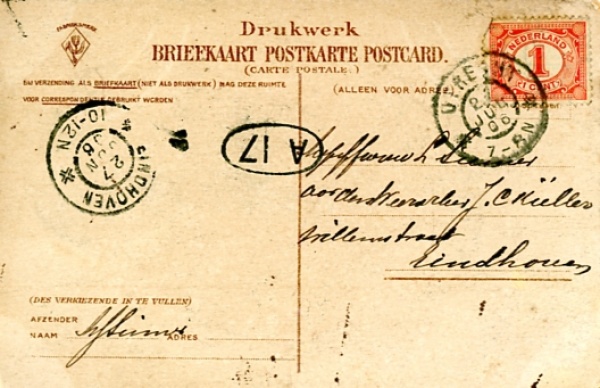 Drukwerk
BRIEFKAART POSTKARTE POSTCARD.
(CARTE POSTALE.)
BIJ VERZENDING ALS BRIEFKAART (NIET ALS DRUKWERK) MAG DEZE RUIMTE
VOOR CORRESPONDENTIE GEBRUIKT WORDEN
(ALLEEN VOOR ADRES)
NEDERLAND
1
CENT
UTRECHT
JUN
06
7-8N
EINDHOVEN
27
JUN
06
10-12N
A 17
Mejuffrouw L
aan den Heer J. C. Küller
Willemstraat
Eindhoven
(DES VERKIEZENDE IN TE VULLEN)
AFZENDER
NAAM
ADRES